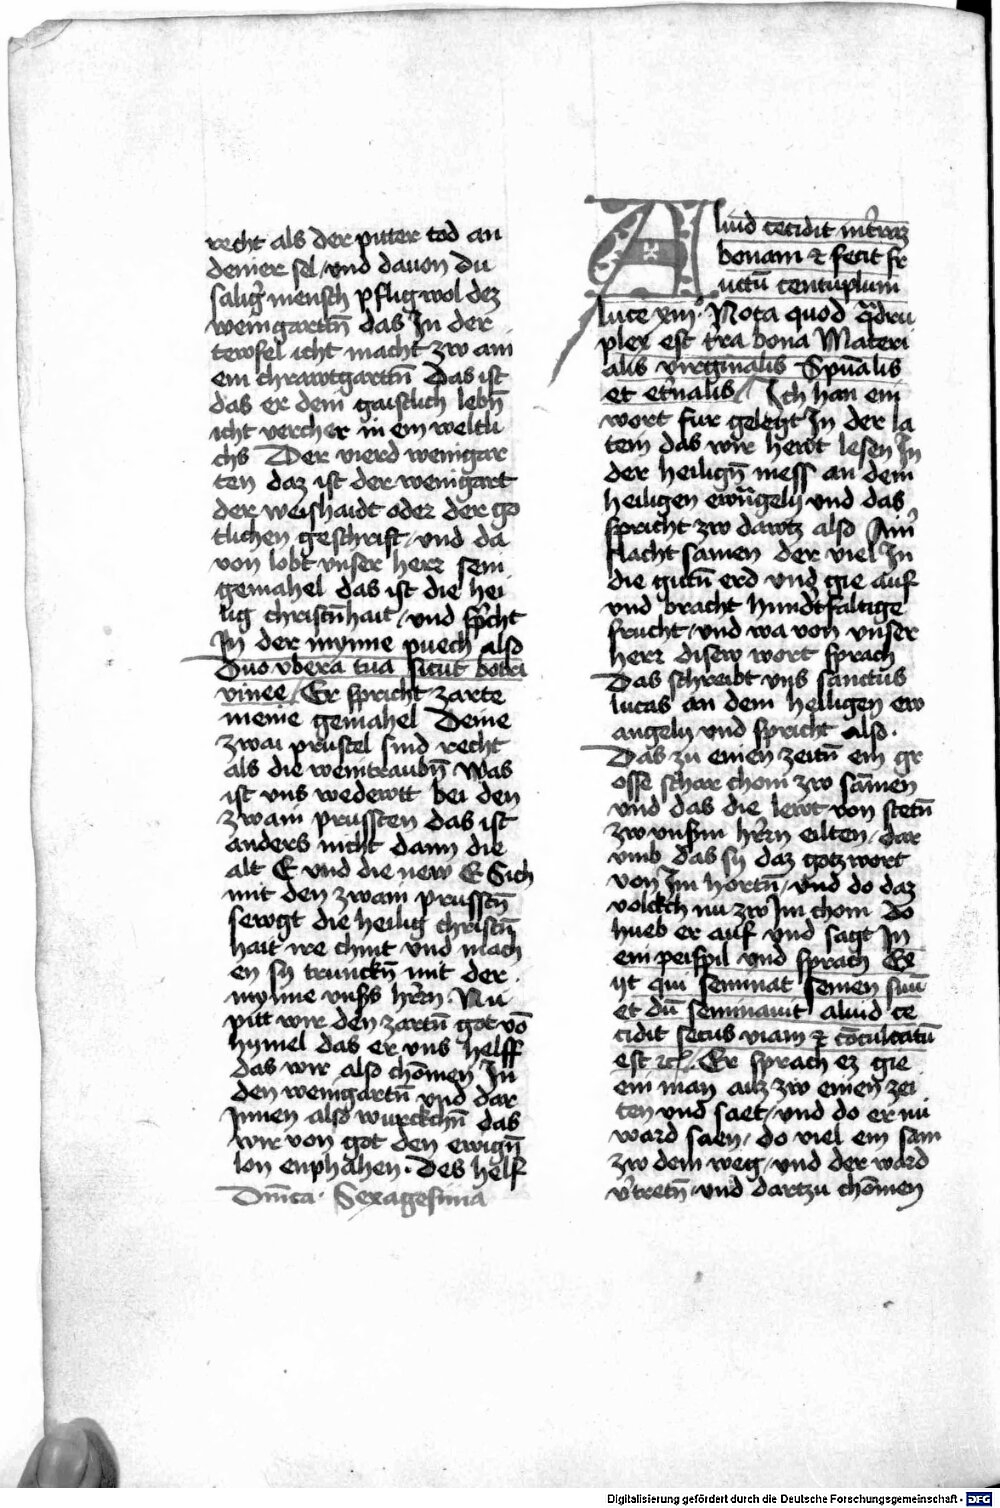 recht als der pitter tod an
deiner sel / vnd dauon du
salig' mensch pflig wol dez
weingarttn̄ das In der
tewfel icht macht zw ain
em chrawtgarttn̄ Das ist
das er dein gaistlich lebn̄
icht vercher in ein weltli
chs Der vierd weingar
ten daz ist der weingart
der weishaidt oder der go
tlichen geschrift / vnd da
von lobt vnser herr sein
gemahel das ist die hei
lig christn̄hait / vnd sp'cht
In der mynne puech also
Duo vbera tua sicut botri
vinee / Er spricht zarte
meine gemahel Deine
zwai prustel sind recht
als die weintraubn̄ Was
ist vns wedewtt bei den
zwain prussten das ist
anders nicht dann die
alt E vnd die new E Sich
mit den zwain prusstn̄
sewgt die heilig christn̄
hait ire chint vnd mach
en sy trunckn̄ mit der
mynne vnsers hr̄rn . Nu
pitt wir den zartn̄ got vō
hymel das er vns helff
das wir also chōmen In
den weingartn̄ vnd dar
Innen also wurckchn̄ das
wir von got den ewign̄
lon enphahen . Des helf
Dn̄ica . Sexagesima
Aliud cecidit in t'raz
bonam et fecit fr
uctū centuplum
luce viii° Nota quod q̄dru
plex est t'ra bona Materi
alis virginalis Spūalis
et et'nalis / Ich han ein
wort fur gelegt In der la
tein das wir hewt lesen In
der heilign̄ mess an dem
heiligen ewāgely vnd das
spricht zw dawtz also Ain
slacht samen der viel In
die gutn̄ erd vnd gie auf
vnd bracht hund'tfaltige
frucht / vnd wa von vnser
herr disew wort sprach
Das schreibt vns sanctus
lucas an dem heiligen ew
angely vnd spricht also .
Das zu einen zeitn̄ ein gr
osse schar chom zw sāmen
vnd das die lewt von stetn̄
zw vnserm hr̄rn eilten / dar
vmb das sy daz gotzwort
von Im hortn̄ / vnd do daz
volckch nu zw Im chom do
hueb er auf vnd sagt In
ein peispil vnd sprach Ex
iit qui seminat semen suū
et dū seminauit aliud ce
cidit secus viam et cōculcatū
est etc̄ . Er sprach ez gie
ein man auz zw einen zei
ten vnd saet / vnd do er nu
ward saen / do viel ein sam
zw dem weg / vnd der ward
v'tretn̄ / vnd dartzu chōmen
Digitalisierung gefördert durch die Deutsche Forschungsgemeinschaft - DFG